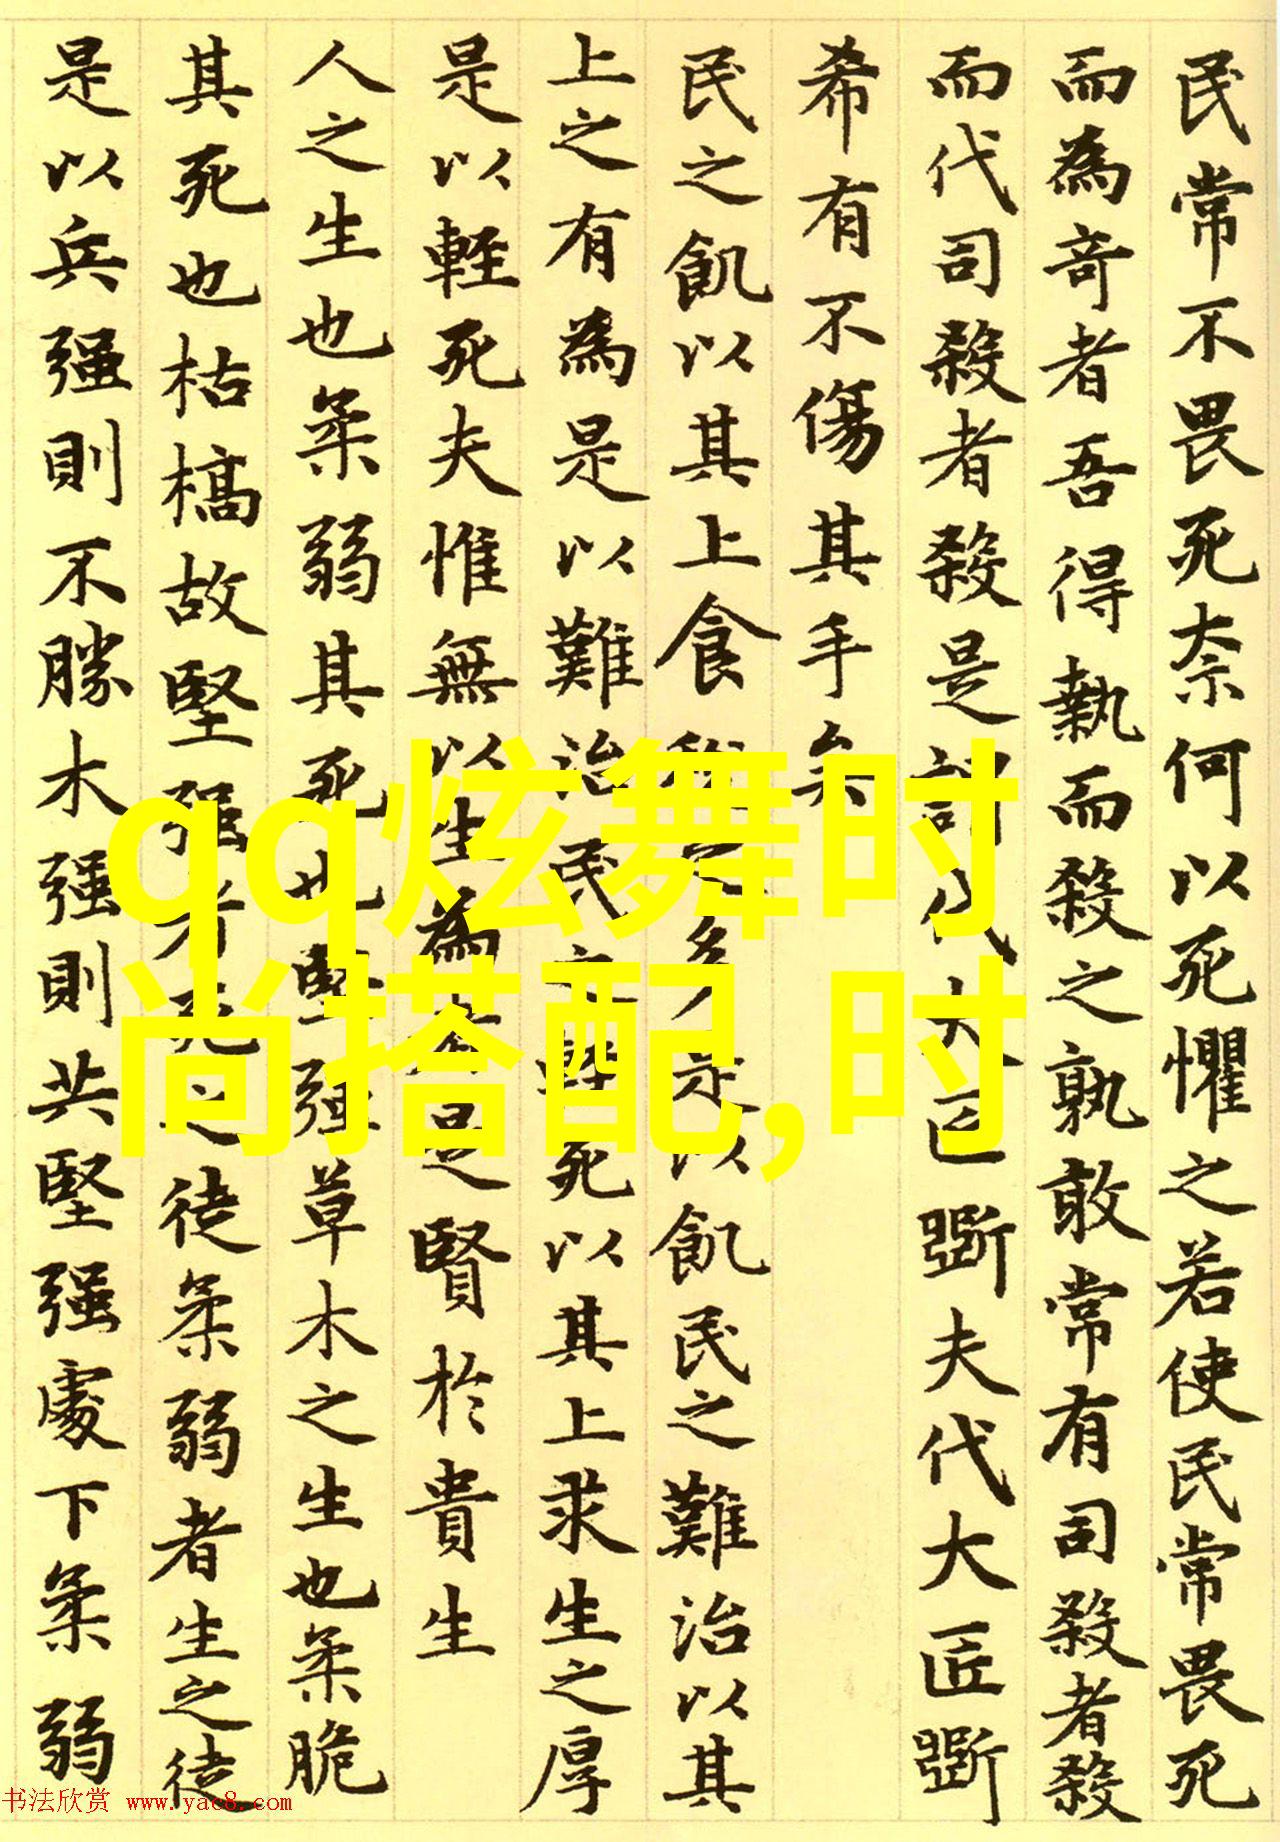 民常不畏死奈何以死懼之若使民常畏死
而為奇者吾得執而殺之孰敢常有司殺者殺
而代司殺者殺是謂代大匠斲夫代大匠斲
希有不傷其手矣
民之飢以其上食稅之多是以飢民之難治以其
上之有為是以難治民之輕死以其上求生之厚
是以輕死夫惟無以生為者是賢於貴生
人之生也柔弱其死也堅强草木之生也柔脆
其死也枯槁故堅强者死之徒柔弱者生之徒
是以兵强則不勝木强則共堅强處下柔弱
qq炫舞时
尚搭配,时
书法欣赏 www.yac8.com